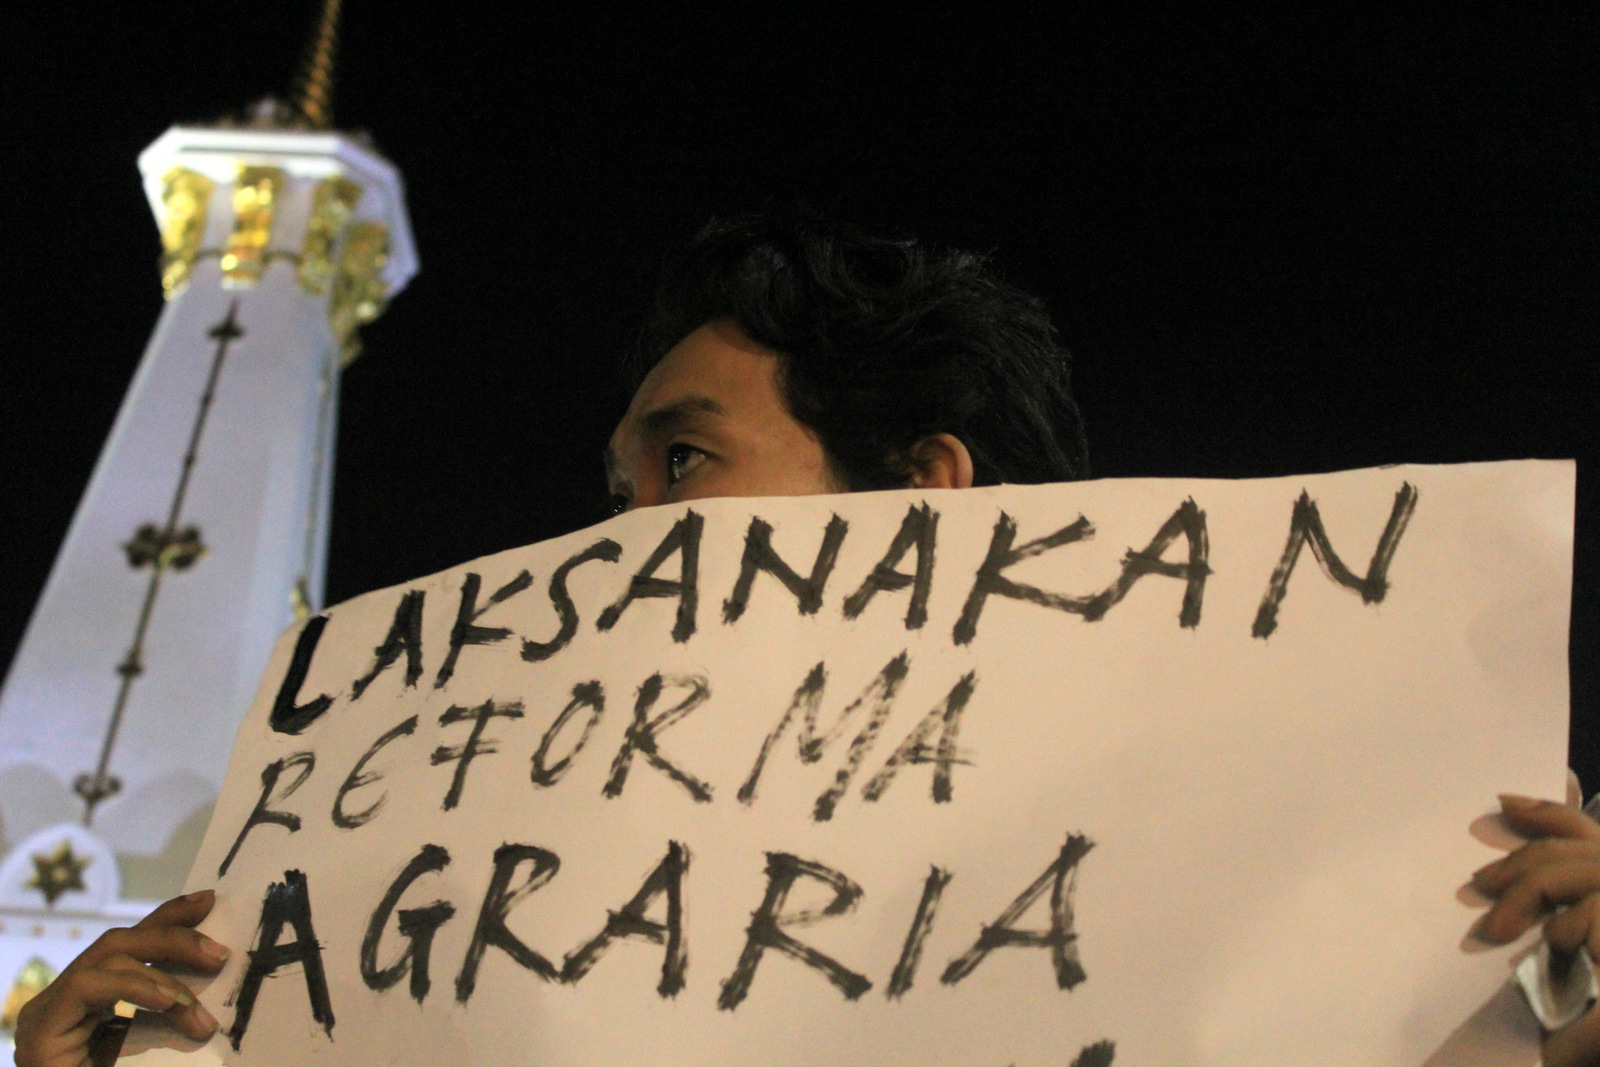 LAKSANAKAN
REFORMA
AGRARIA